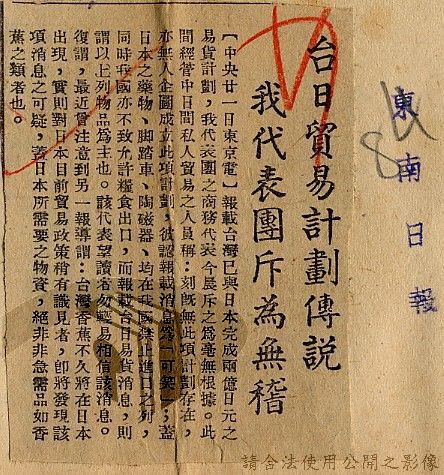 東南日報
台日貿易計劃傳說
我代表團斥為無稽
【中央廿一日東京電】報載台灣已與日本完成兩億日元之
易貨計劃,我代表團之商務代表今晨斥之為毫無根據。此
間經管中日間私人貿易之人員稱:刻既無此項計劃存在,
亦無人企圖成立此項計劃,彼認報載消息為「可笑」;蓋
日本之藥物、脚踏車、陶磁器、均在我國禁止進口之列,
同時我國亦不致允許糧食出口,而報載台日易貨消息,則
謂以上列物品為主也。該代表望讀者勿輕易相信該消息。
復謂:最近曾注意到另一報導謂:台灣香蕉不久將在日本
出現,實則對日本目前貿易政策稍有識見者,即將發現該
項消息之可疑,蓋日本所需要之物資,絕非非急需品如香
蕉之類者也。
請合法使用公開之影像